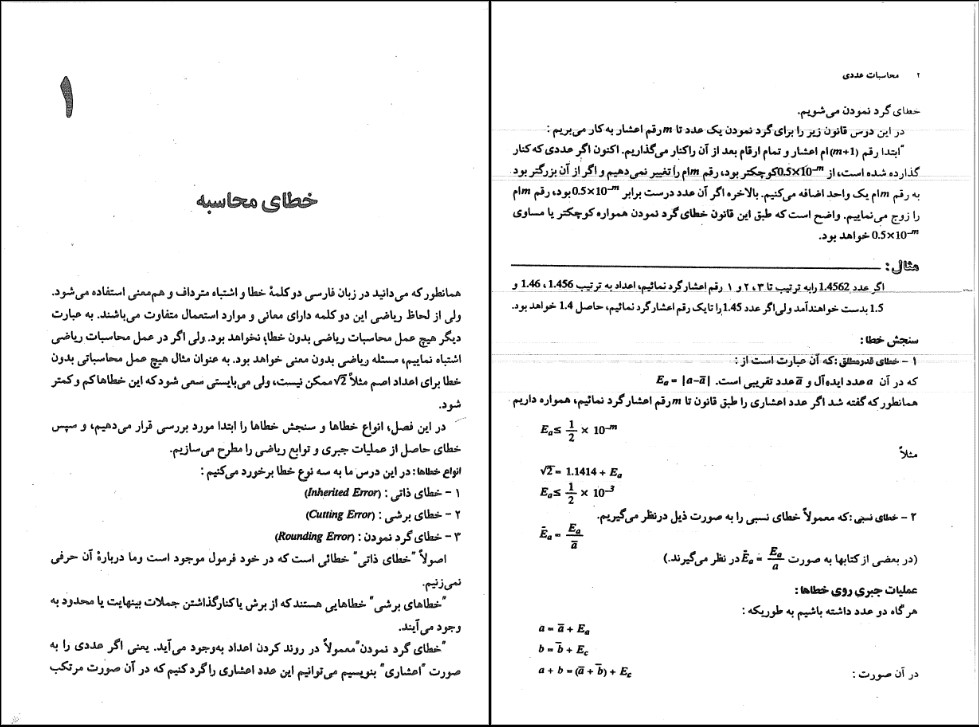 ۱
خطای محاسبه
همانطور که می‌دانید در زبان فارسی دو کلمهٔ خطا و اشتباه مترداف و هم‌معنی استفاده می‌شود.
ولی از لحاظ ریاضی این دو کلمه دارای معانی و موارد استعمال متفاوت می‌باشند. به عبارت
دیگر هیچ عمل محاسبات ریاضی بدون خطاء نخواهد بود. ولی اگر در عمل محاسبات ریاضی
اشتباه نماییم، مسئله ریاضی بدون معنی خواهد بود. به عنوان مثال هیچ عمل محاسباتی بدون
خطا برای اعداد اصم مثلاً √2 ممکن نیست، ولی می‌بایستی سعی شود که این خطاها کم و کمتر
شود.
در این فصل، انواع خطاها و سنجش خطاها را ابتدا مورد بررسی قرار می‌دهیم، و سپس
خطای حاصل از عملیات جبری و توابع ریاضی را مطرح می‌سازیم.
انواع خطاها: در این درس ما به سه نوع خطا برخورد می‌کنیم :
۱ - خطای ذاتی : (Inherited Error)
۲ - خطای برشی : (Cutting Error)
۳ - خطای گرد نمودن : (Rounding Error)
اصولاً "خطای ذاتی" خطائی است که در خود فرمول موجود است وما دربارهٔ آن حرفی
نمی‌زنیم.
"خطاهای برشی" خطاهایی هستند که از برش یا کنار گذاشتن جملات بینهایت یا محدود به
وجود می‌آیند.
"خطای گرد نمودن" معمولاً در روند کردن اعداد به‌وجود می‌آید. یعنی اگر عددی را به
صورت "اعشاری" بنویسیم می‌توانیم این عدد اعشاری را گرد کنیم که در آن صورت مرتکب
۲ محاسبات عددی
خطای گرد نمودن می‌شویم.
در این درس قانون زیر را برای گرد نمودن یک عدد تا m رقم اعشار به کار می‌بریم :
"ابتدا رقم (m+1)ام اعشار و تمام ارقام بعد از آن را کنار می‌گذاریم. اکنون اگر عددی که کنار
گذارده شده است، از 0.5×10⁻ᵐ کوچکتر بود، رقم m ام را تغییر نمی‌دهیم و اگر از آن بزرگتر بود
به رقم m ام یک واحد اضافه می‌کنیم. بالاخره اگر آن عدد درست برابر 0.5×10⁻ᵐ بود، رقم m ام
را زوج می‌نماییم. واضح است که طبق این قانون خطای گرد نمودن همواره کوچکتر یا مساوی
0.5×10⁻ᵐ خواهد بود.
مثال :
اگر عدد 1.4562 رابه ترتیب تا ۳، ۲ و ۱ رقم اعشار گرد نمائیم، اعداد به ترتیب 1.456 ، 1.46 و
1.5 بدست خواهندآمد ولی اگر عدد 1.45 را تا یک رقم اعشار گرد نمائیم، حاصل 1.4 خواهد بود.
سنجش خطا :
۱ - خطای قدرمطلق : که آن عبارت است از :
که در آن a عدد ایده‌آل و a̅ عدد تقریبی است. Eₐ = |a-a̅|
همانطور که گفته شد اگر عدد اعشاری را طبق قانون تا m رقم اعشار گرد نمائیم، همواره داریم
Eₐ ≤ 1/2 × 10⁻ᵐ
مثلاً
√2 = 1.1414 + Eₐ
Eₐ ≤ 1/2 × 10⁻³
۲ - خطای نسبی : که معمولاً خطای نسبی را به صورت ذیل درنظر می‌گیریم.
E̅ₐ = Eₐ/a̅
(در بعضی از کتابها به صورت E̅ₐ = Eₐ/a در نظر می‌گیرند.)
عملیات جبری روی خطاها :
هر گاه دو عدد داشته باشیم به طوریکه :
a = a̅ + Eₐ
b = b̅ + E_c
در آن صورت : a + b = (a̅ + b̅) + E_c